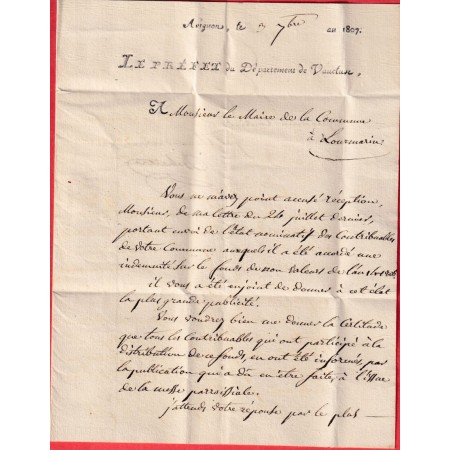 Avignon, le 5 7bre an 1807.
LE PRÉFET du Département de Vaucluse,
A Monsieur le Maire de la Commune
à Lourmarin
Vous ne m'avez point accusé réception,
Monsieur, de ma lettre du 24 juillet dernier,
portant envoi de l'état nominatif des Contribuables
de votre Commune auxquels il a été accordé une
indemnité sur le fonds de non valeurs de l'an
il vous a été enjoint de donner à cet état
la plus grande publicité.
Vous voudrez bien me donner la Certitude
que tous les Contribuables qui ont participé à la
distribution de ce fonds, en ont été informés, par
la publication qui a dû en être faite, à l'issue
de la messe parroissiale.
j'attends votre réponse par le plus